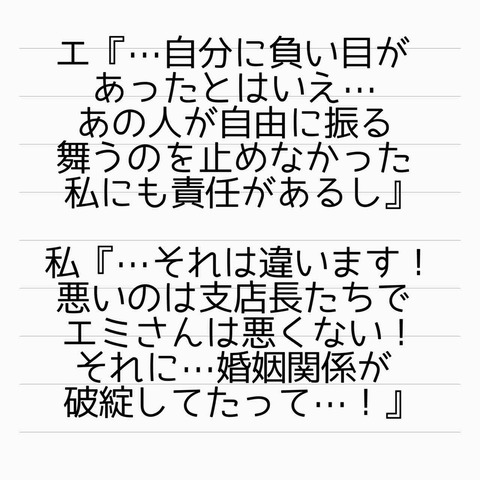 エ『…自分に負い目が
あったとはいえ…
あの人が自由に振る
舞うのを止めなかった
私にも責任があるし』
私『…それは違います！
悪いのは支店長たちで
エミさんは悪くない！
それに…婚姻関係が
破綻してたって…！』